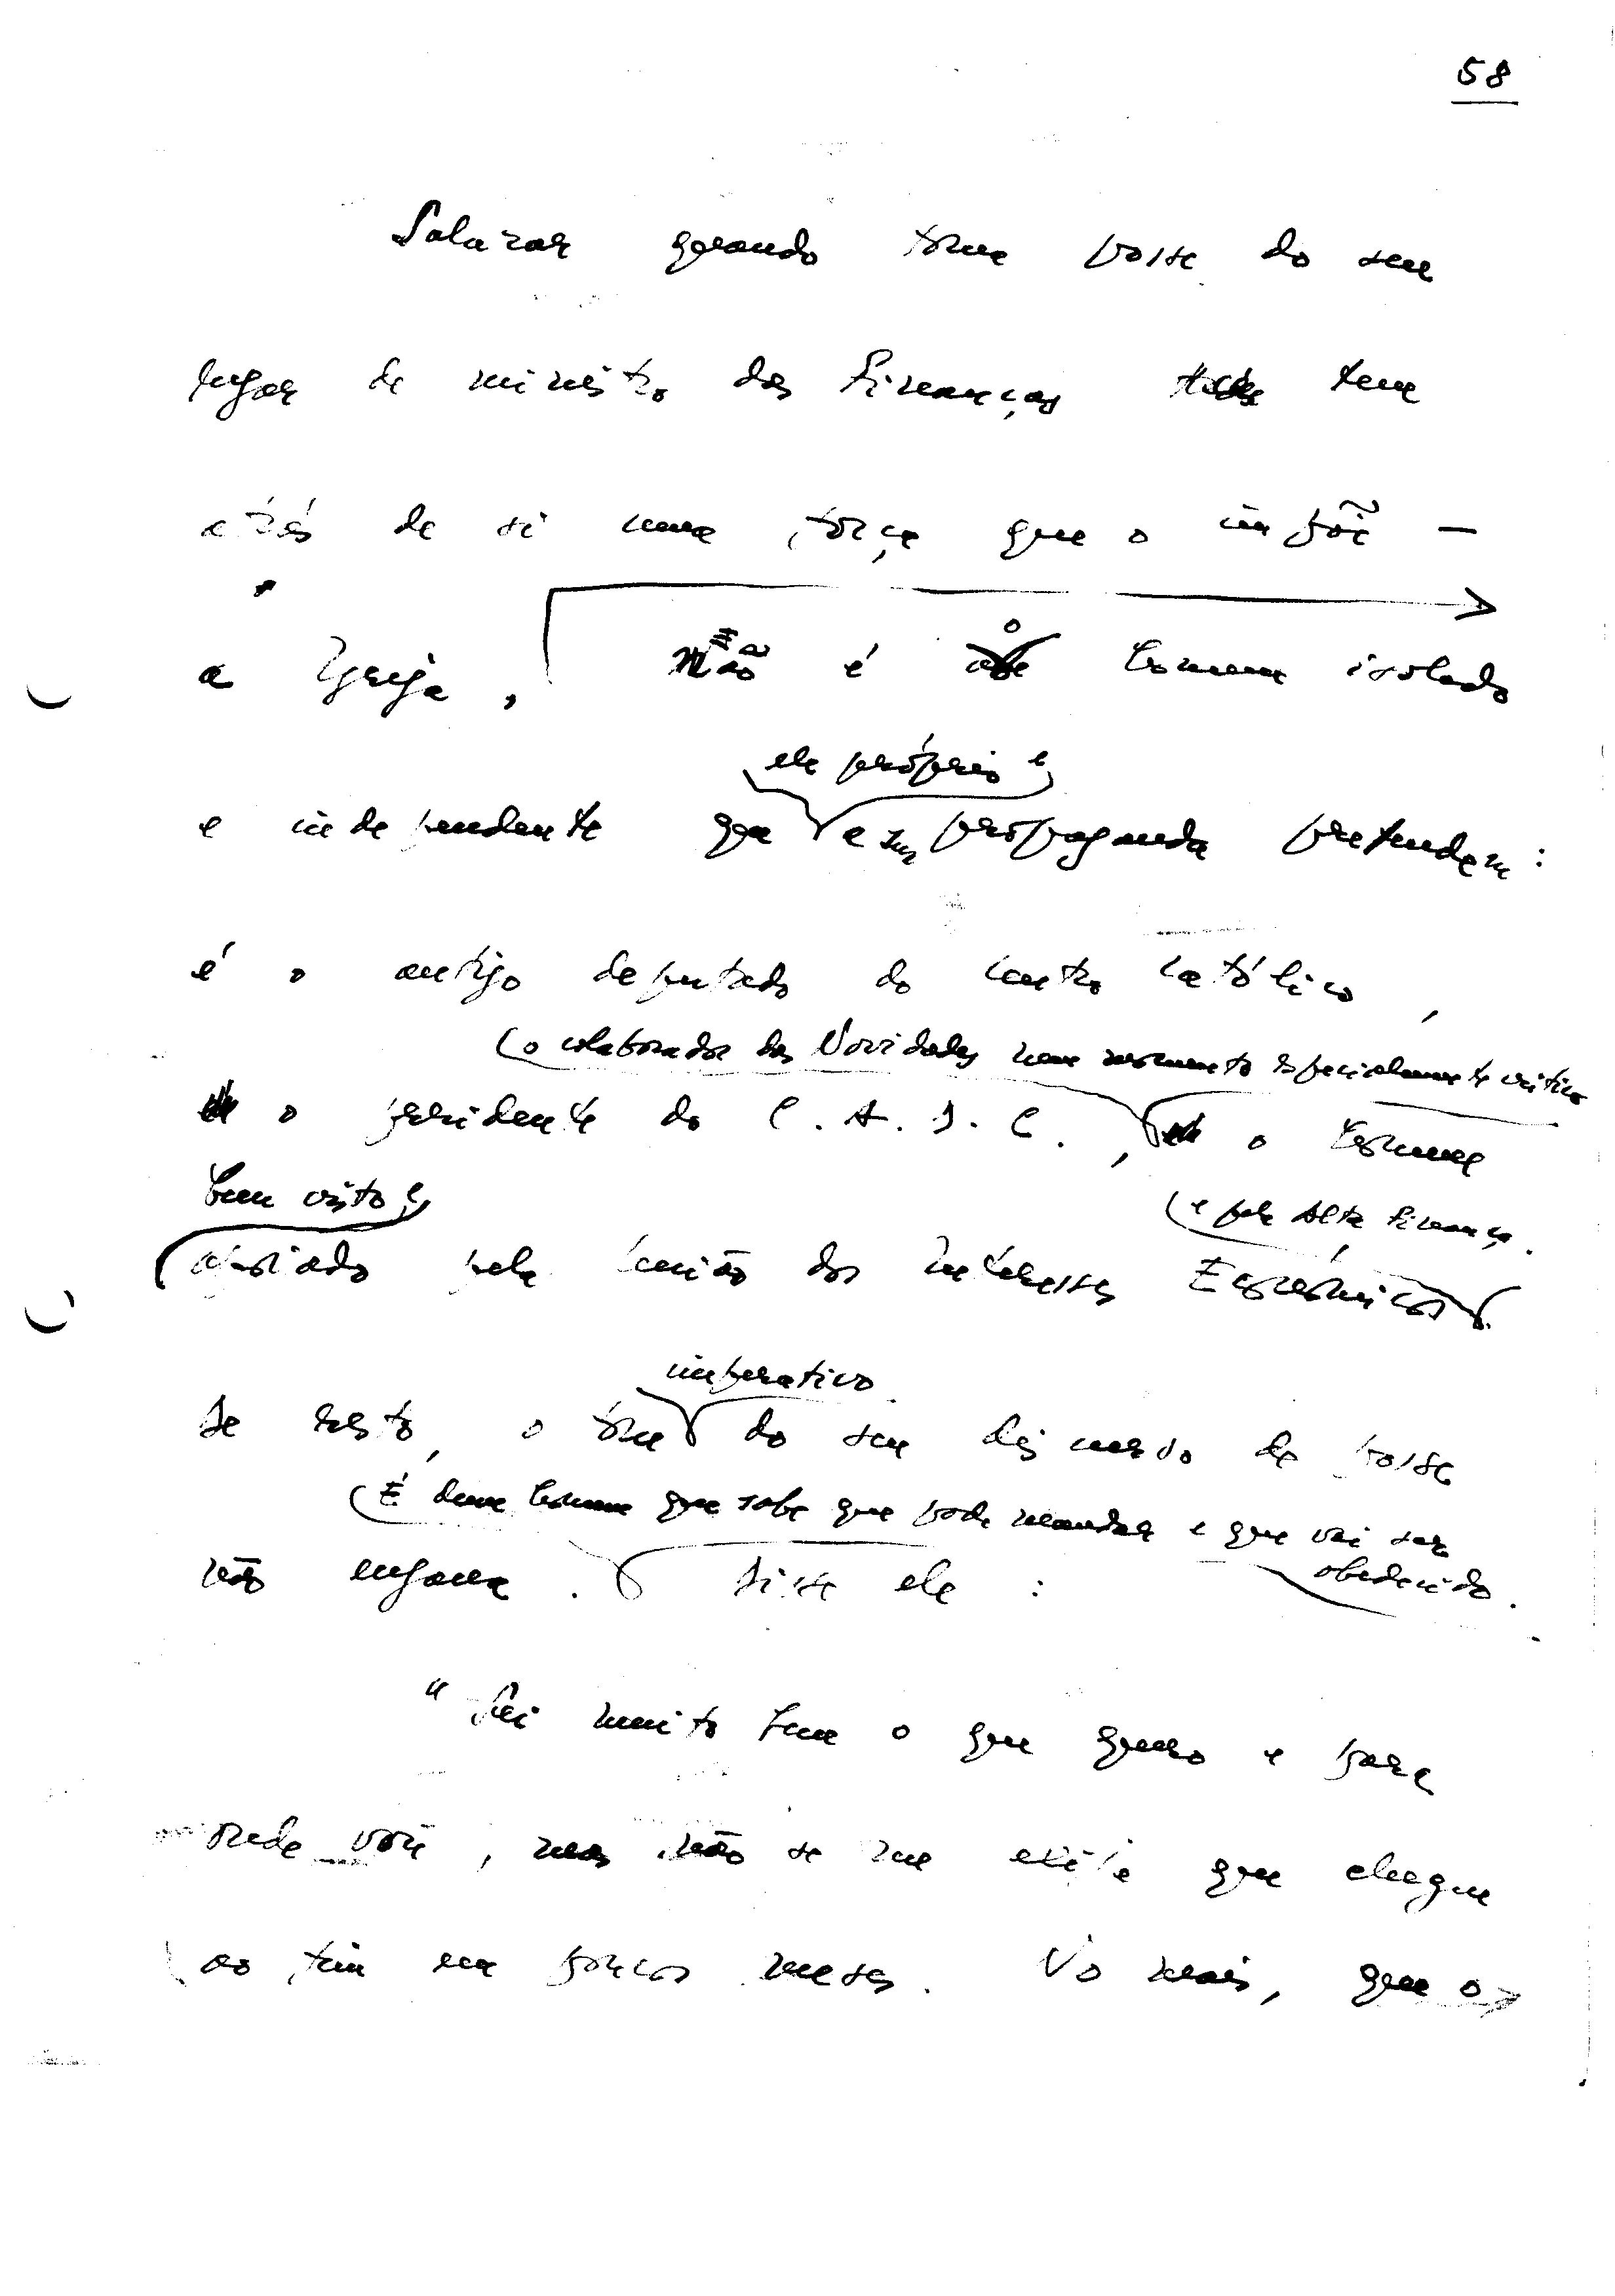 58
Salazar quando toma posse do seu
lugar de ministro das Finanças tem
atrás de si uma força que o impõe —
a Igreja, Não é o homem isolado
ele próprio e
e independente que a sua propaganda pretendem :
é o antigo deputado do Centro Católico,
o colaborador das Novidades num momento especialmente crítico
o presidente do C. A. D. C., o homem
bem visto e
e pela Alta Finança.
apoiado pela União dos Interesses Económicos
imperativo
De resto, o tom do seu discurso de posse
É dum homem que sabe que pode mandar e que vai ser
obedecido.
não engana. Disse ele :
" Sei muito bem o que quero e para
onde vou, mas não se me exija que chegue
ao fim em poucos meses. No mais, que o